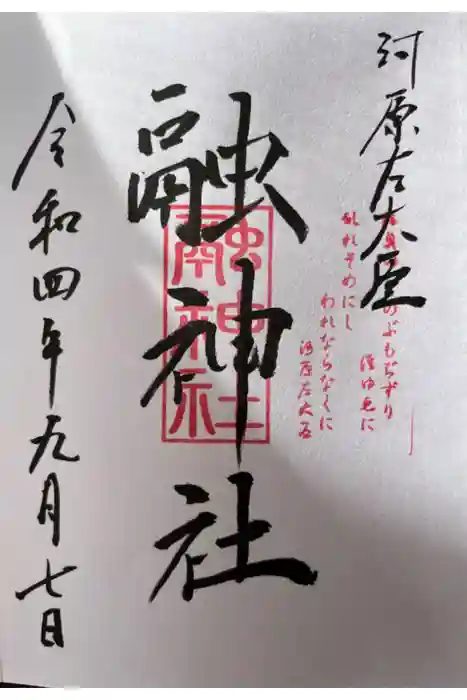 河原左大臣
のぶもぢずり
誰ゆゑに
乱れそめにし
われならなくに
河原左大臣
融神社
融神社
令和四年九月七日